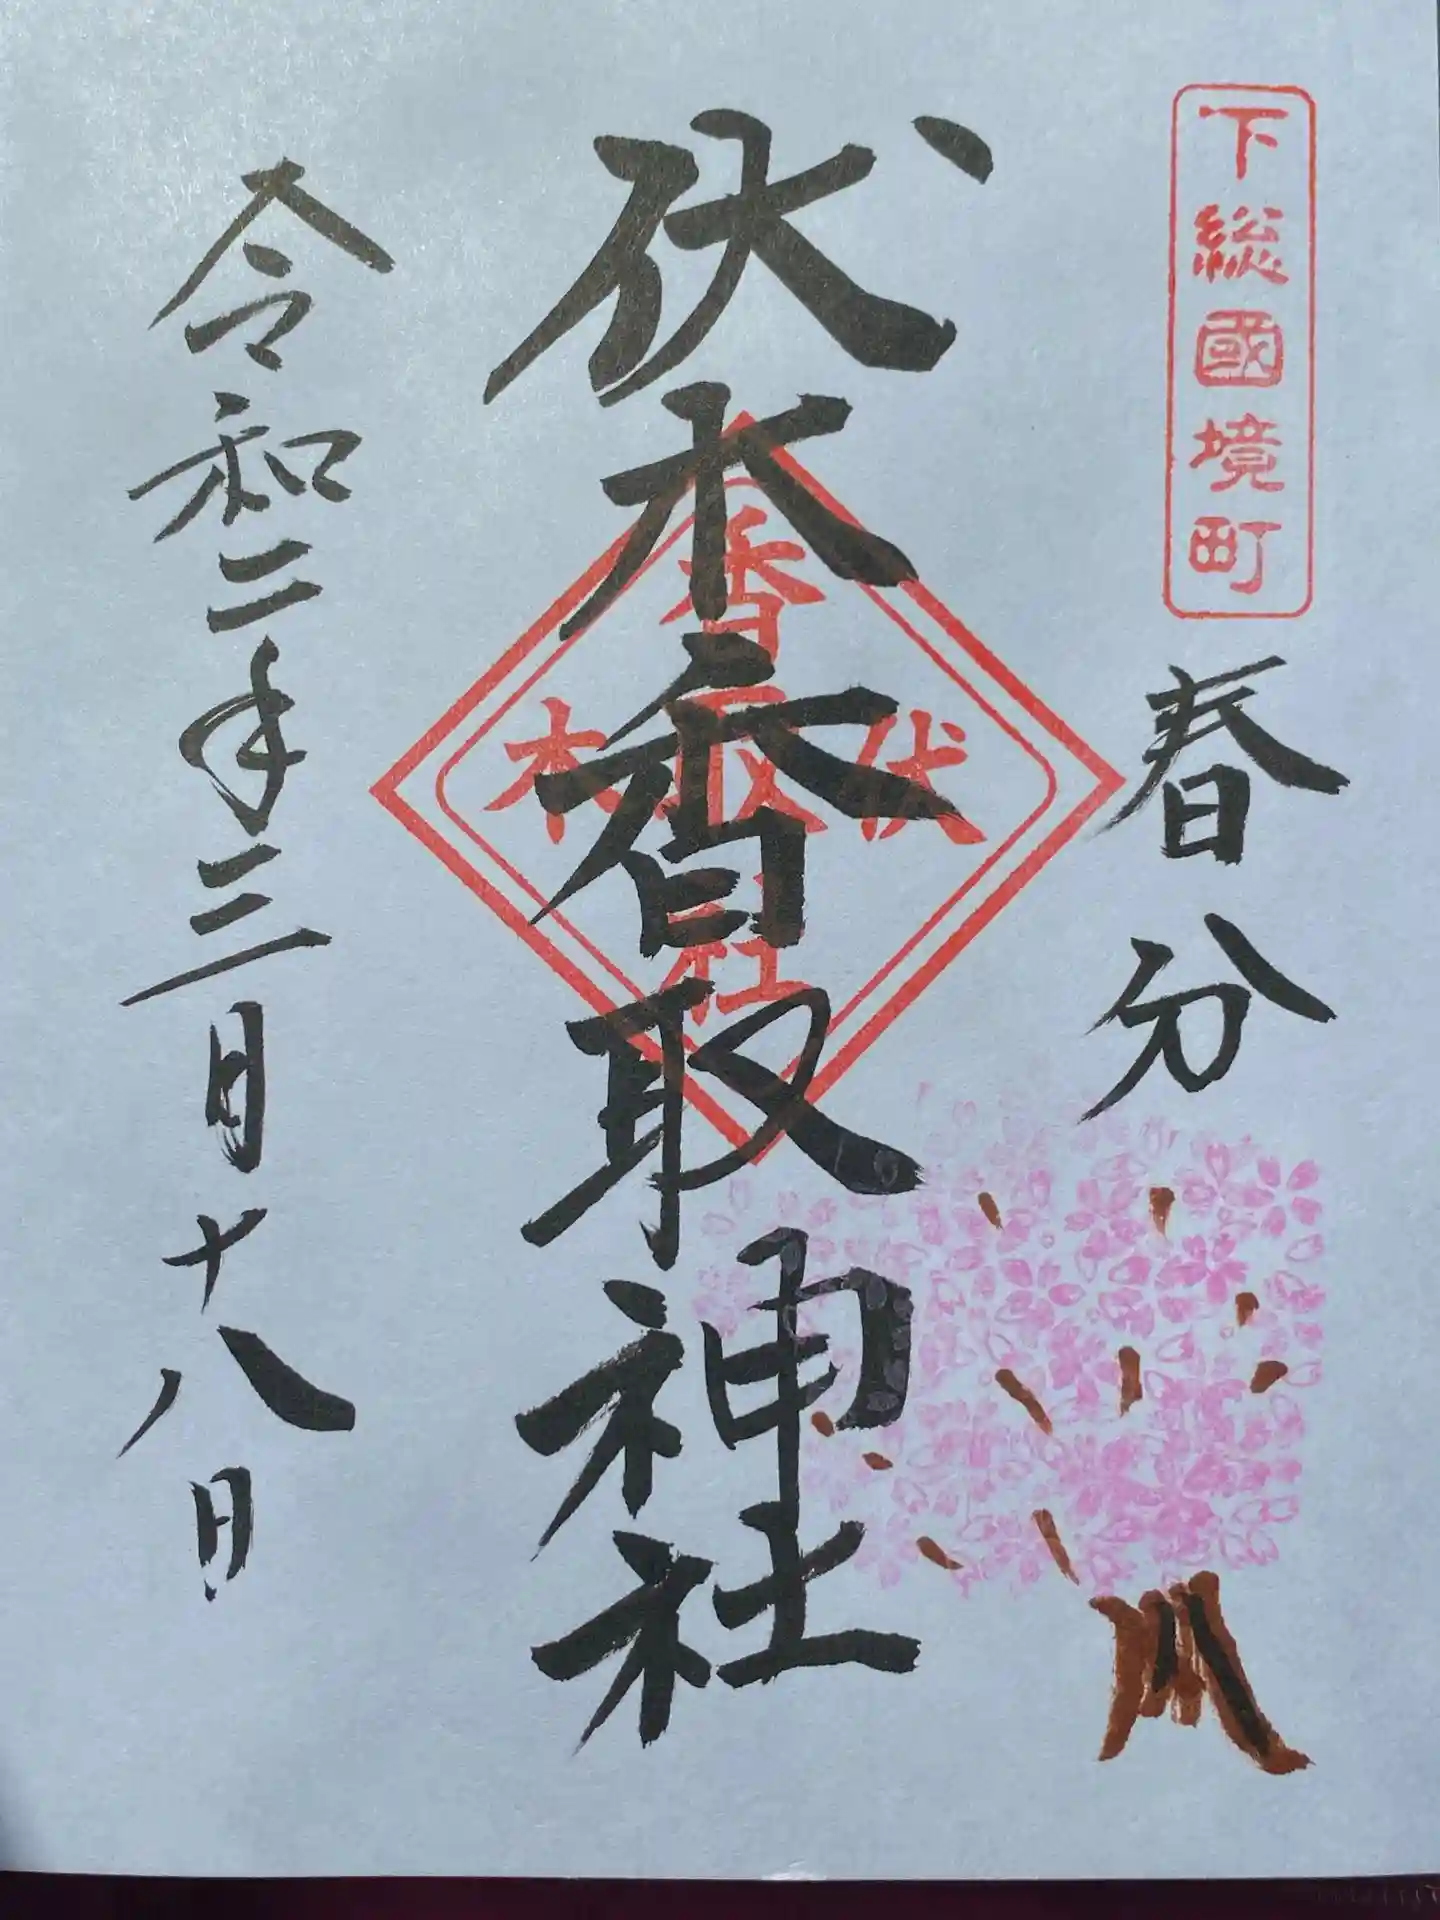 下総國境町
春分
伏木香取神社
香取
伏
木
社
令和二年三月十八日